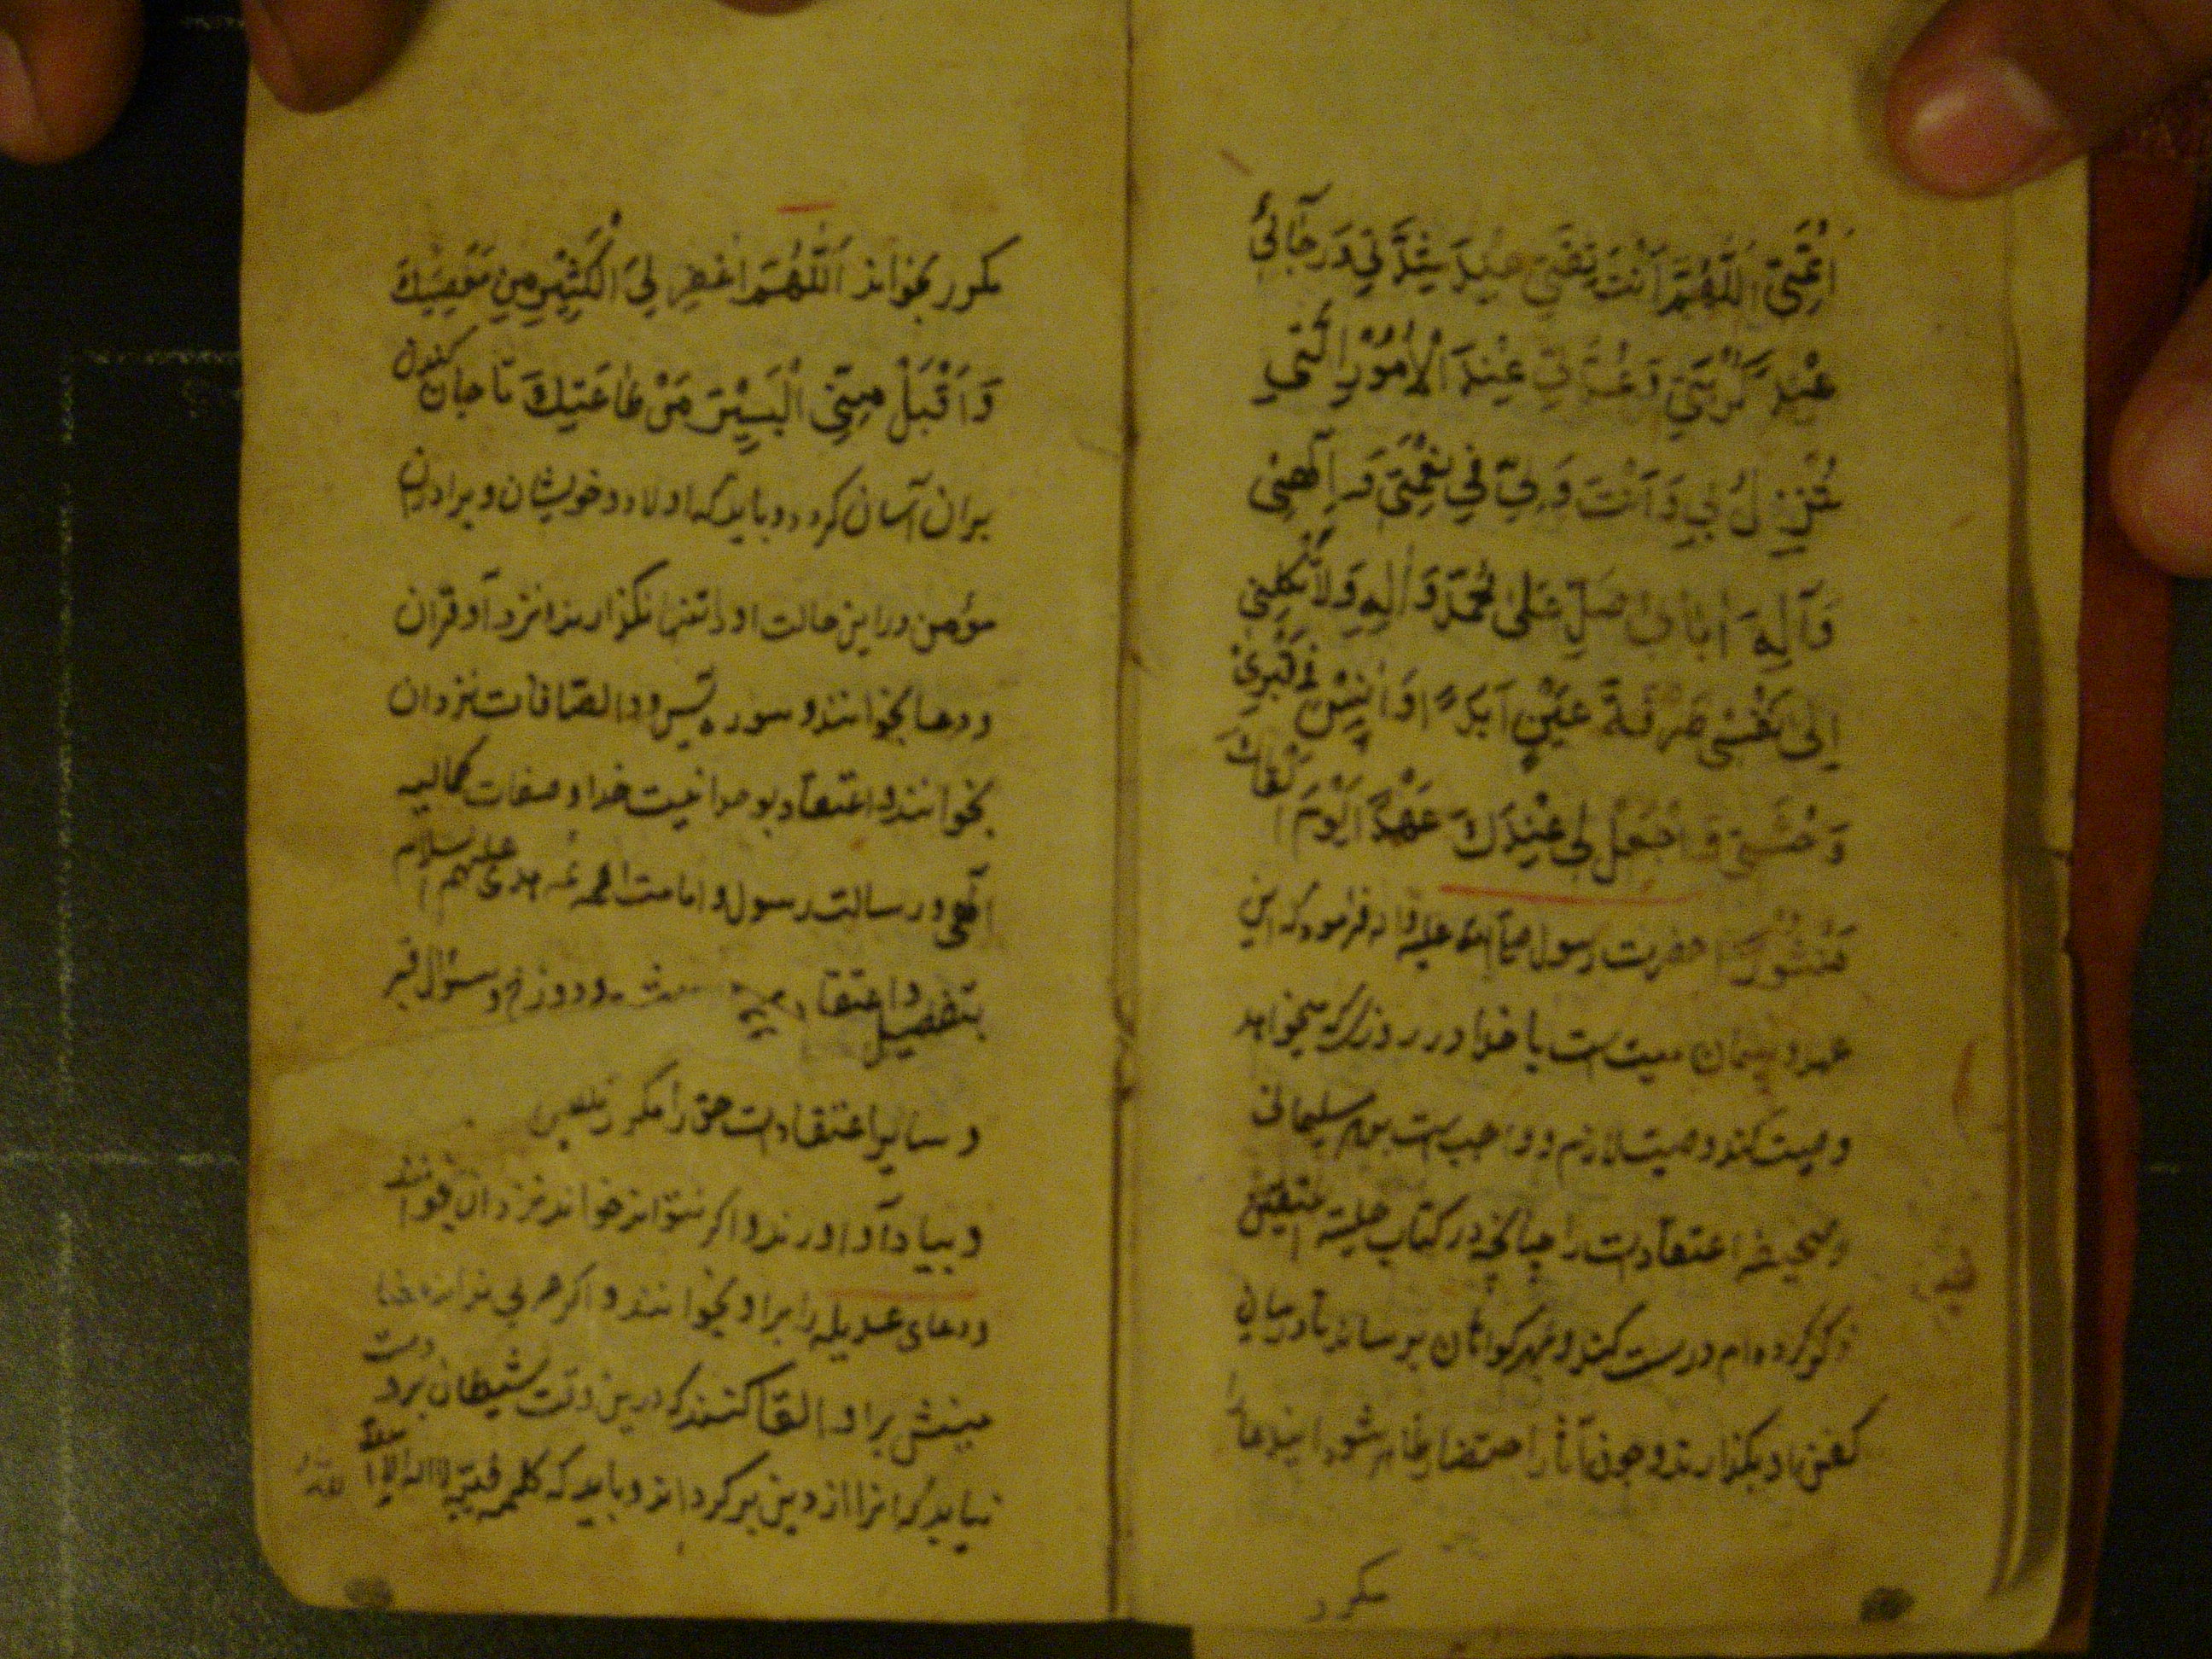 اَغِثْنِی اَللّهُمَّ اَنْتَ ثِقَتی عِنْدَ شِدَّتی وَ رَجائی
عِنْدَ کُرْبَتی وَ عُدَّتی عِنْدَ الْاُمُوْرِ الَّتی
تُنْزِلُ بی وَ اَنْتَ وَلِیّی فی نِعْمَتی وَ اِلهی
وَ آلِهَ ابائی صَلِّ عَلی مُحَمَّدٍ وَ الِهِ وَ لا تَکِلْنی
اِلی نَفْسی طَرْفَةَ عَیْنٍ اَبَدًا وَ انِسْ فی قَبْری
وَحْشَتی وَ اجْعَلْ لی عِنْدَكَ عَهْدًا یَوْمَ اَلْقاكَ
مَنْشُوْرًا حضرت رسول صلی الله علیه و اله فرمود که این
عهد و پیمان میت است با خدا در روزی که میخواهد
وصیت کند و وصیت لازم و واجب است بر هر مسلمانی
و صحیفه اعتقادات را چنانچه در کتاب حلیة المتقین
ذکر کرده ام درست کند و مهر کواهان برساند تا در میان
کفن او بکذارند و چون آثار احتضار ظاهر شود این دعا را
مکرر
مکرر بخواند اَللّهُمَّ اغْفِرْ لِیَ الْکَثِیْرَ مِنْ مَعْصِیَتِكَ
وَ اَقْبَلْ مِنِّی الْیَسِیْرَ مَنْ طاعَتِكَ تا جان کندن
بران آسان کردد و باید که اولاد و خویشان و برادران
مؤمن در این حالت او را تنها نکذارند نزد او قران
و دعا بخوانند و سوره یس و والصافات نزد ان
بخوانند و اعتقاد بوحدانیت خدا و صفات کمالیه
الهی و رسالت رسول و امامت ائمه هدی علیهم السلام
بتفصیل و اعتقاد بهشت و دوزخ و سؤال قبر
و سایر اعتقادات حق را مکرر تلقین
و بیاد او اورند و اکر نتواند خواند نزد ان بخوانند
و دعای عدیله را برا و بخوانند و اکر عربی نداند
برا و القا کنند که درین وقت شیطان نزد
نیاید که انرا از دین بر کرداند و باید که کلمه طیبه لا اله الا
الله را